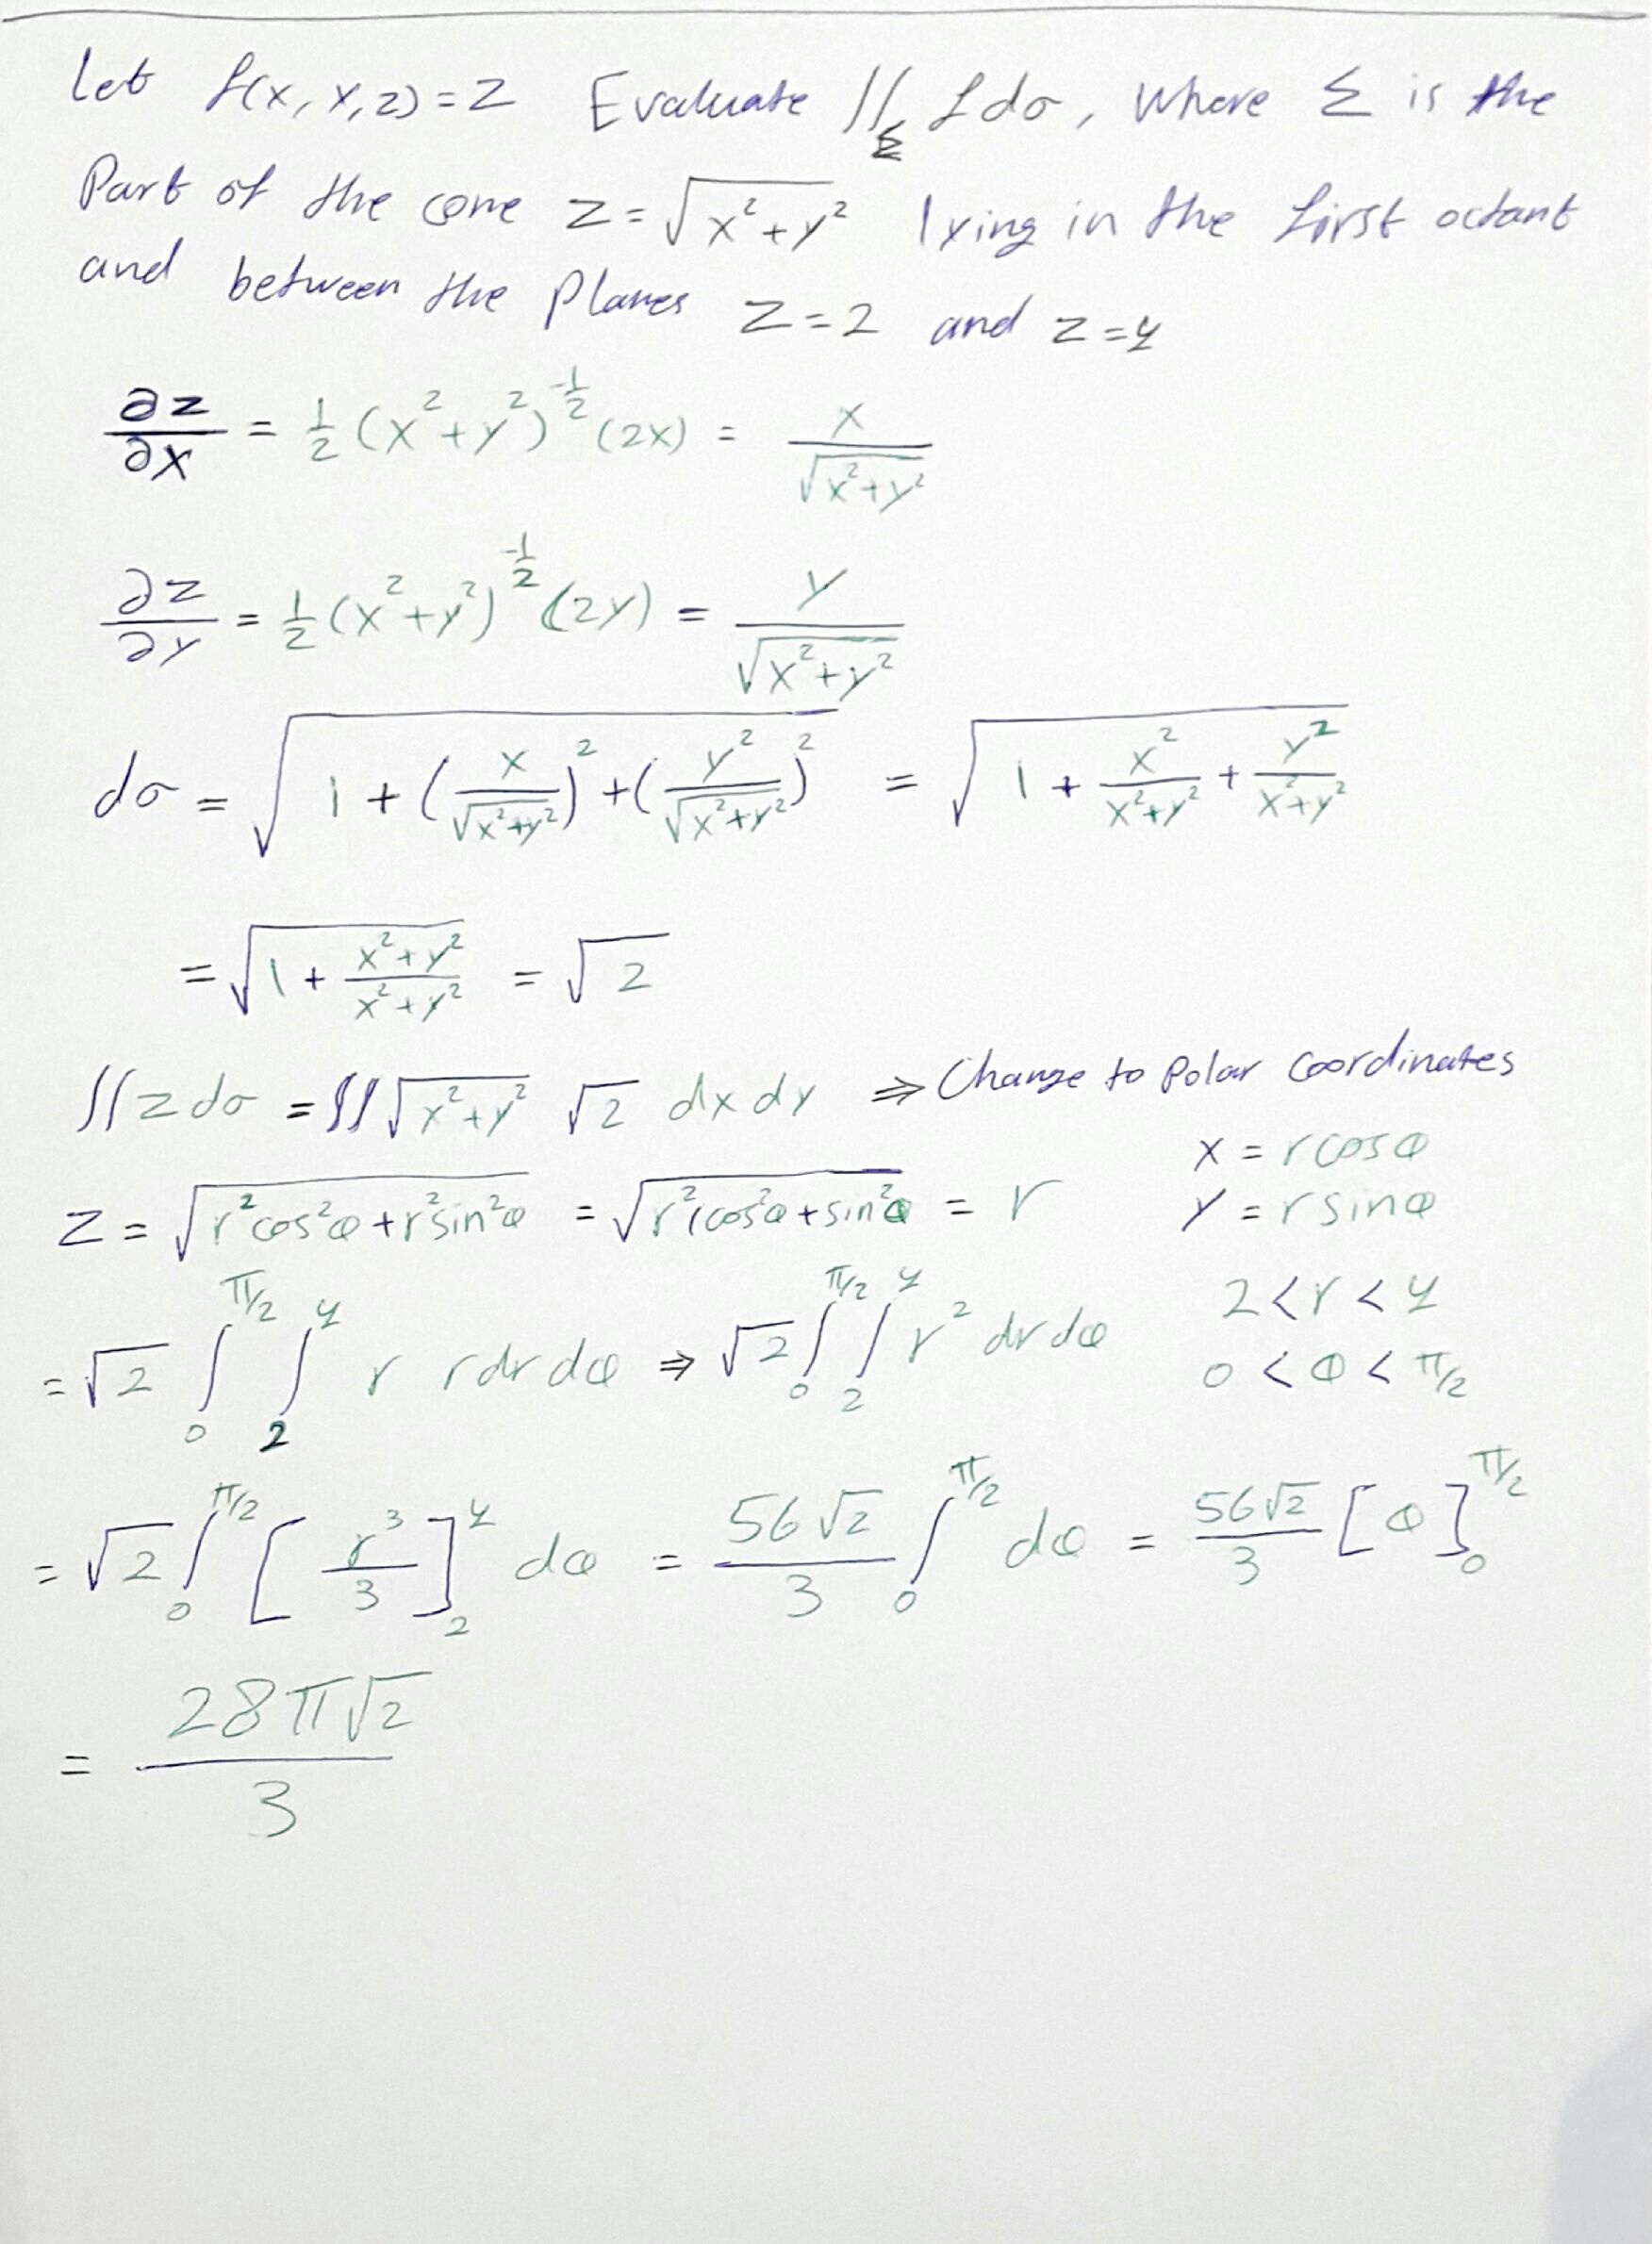 Let f(x, y, z) = z Evaluate ∬_Σ f dσ, where Σ is the
Part of the cone z = √(x² + y²) lying in the first octant
and between the planes z = 2 and z = 4
∂z/∂x = 1/2 (x² + y²)^(-1/2) (2x) = x/√(x² + y²)
∂z/∂y = 1/2 (x² + y²)^(-1/2) (2y) = y/√(x² + y²)
dσ = √(1 + (x/√(x² + y²))² + (y²/√(x² + y²))²) = √(1 + x²/(x² + y²) + y²/(x² + y²))
= √(1 + (x² + y²)/(x² + y²)) = √2
∬ z dσ = ∬ √(x² + y²) √2 dx dy ⇒ Change to Polar Coordinates
x = r cos θ
z = √(r² cos² θ + r² sin² θ) = √(r² (cos² θ + sin² θ) = r
y = r sin θ
2 < r < 4
= √2 ∫_0^(π/2) ∫_2^4 r r dr dθ ⇒ √2 ∫_0^(π/2) ∫_2^4 r² dr dθ
0 < θ < π/2
= √2 ∫_0^(π/2) [r³/3]_2^4 dθ = 56√2/3 ∫_0^(π/2) dθ = 56√2/3 [θ]_0^(π/2)
= 28π√2/3